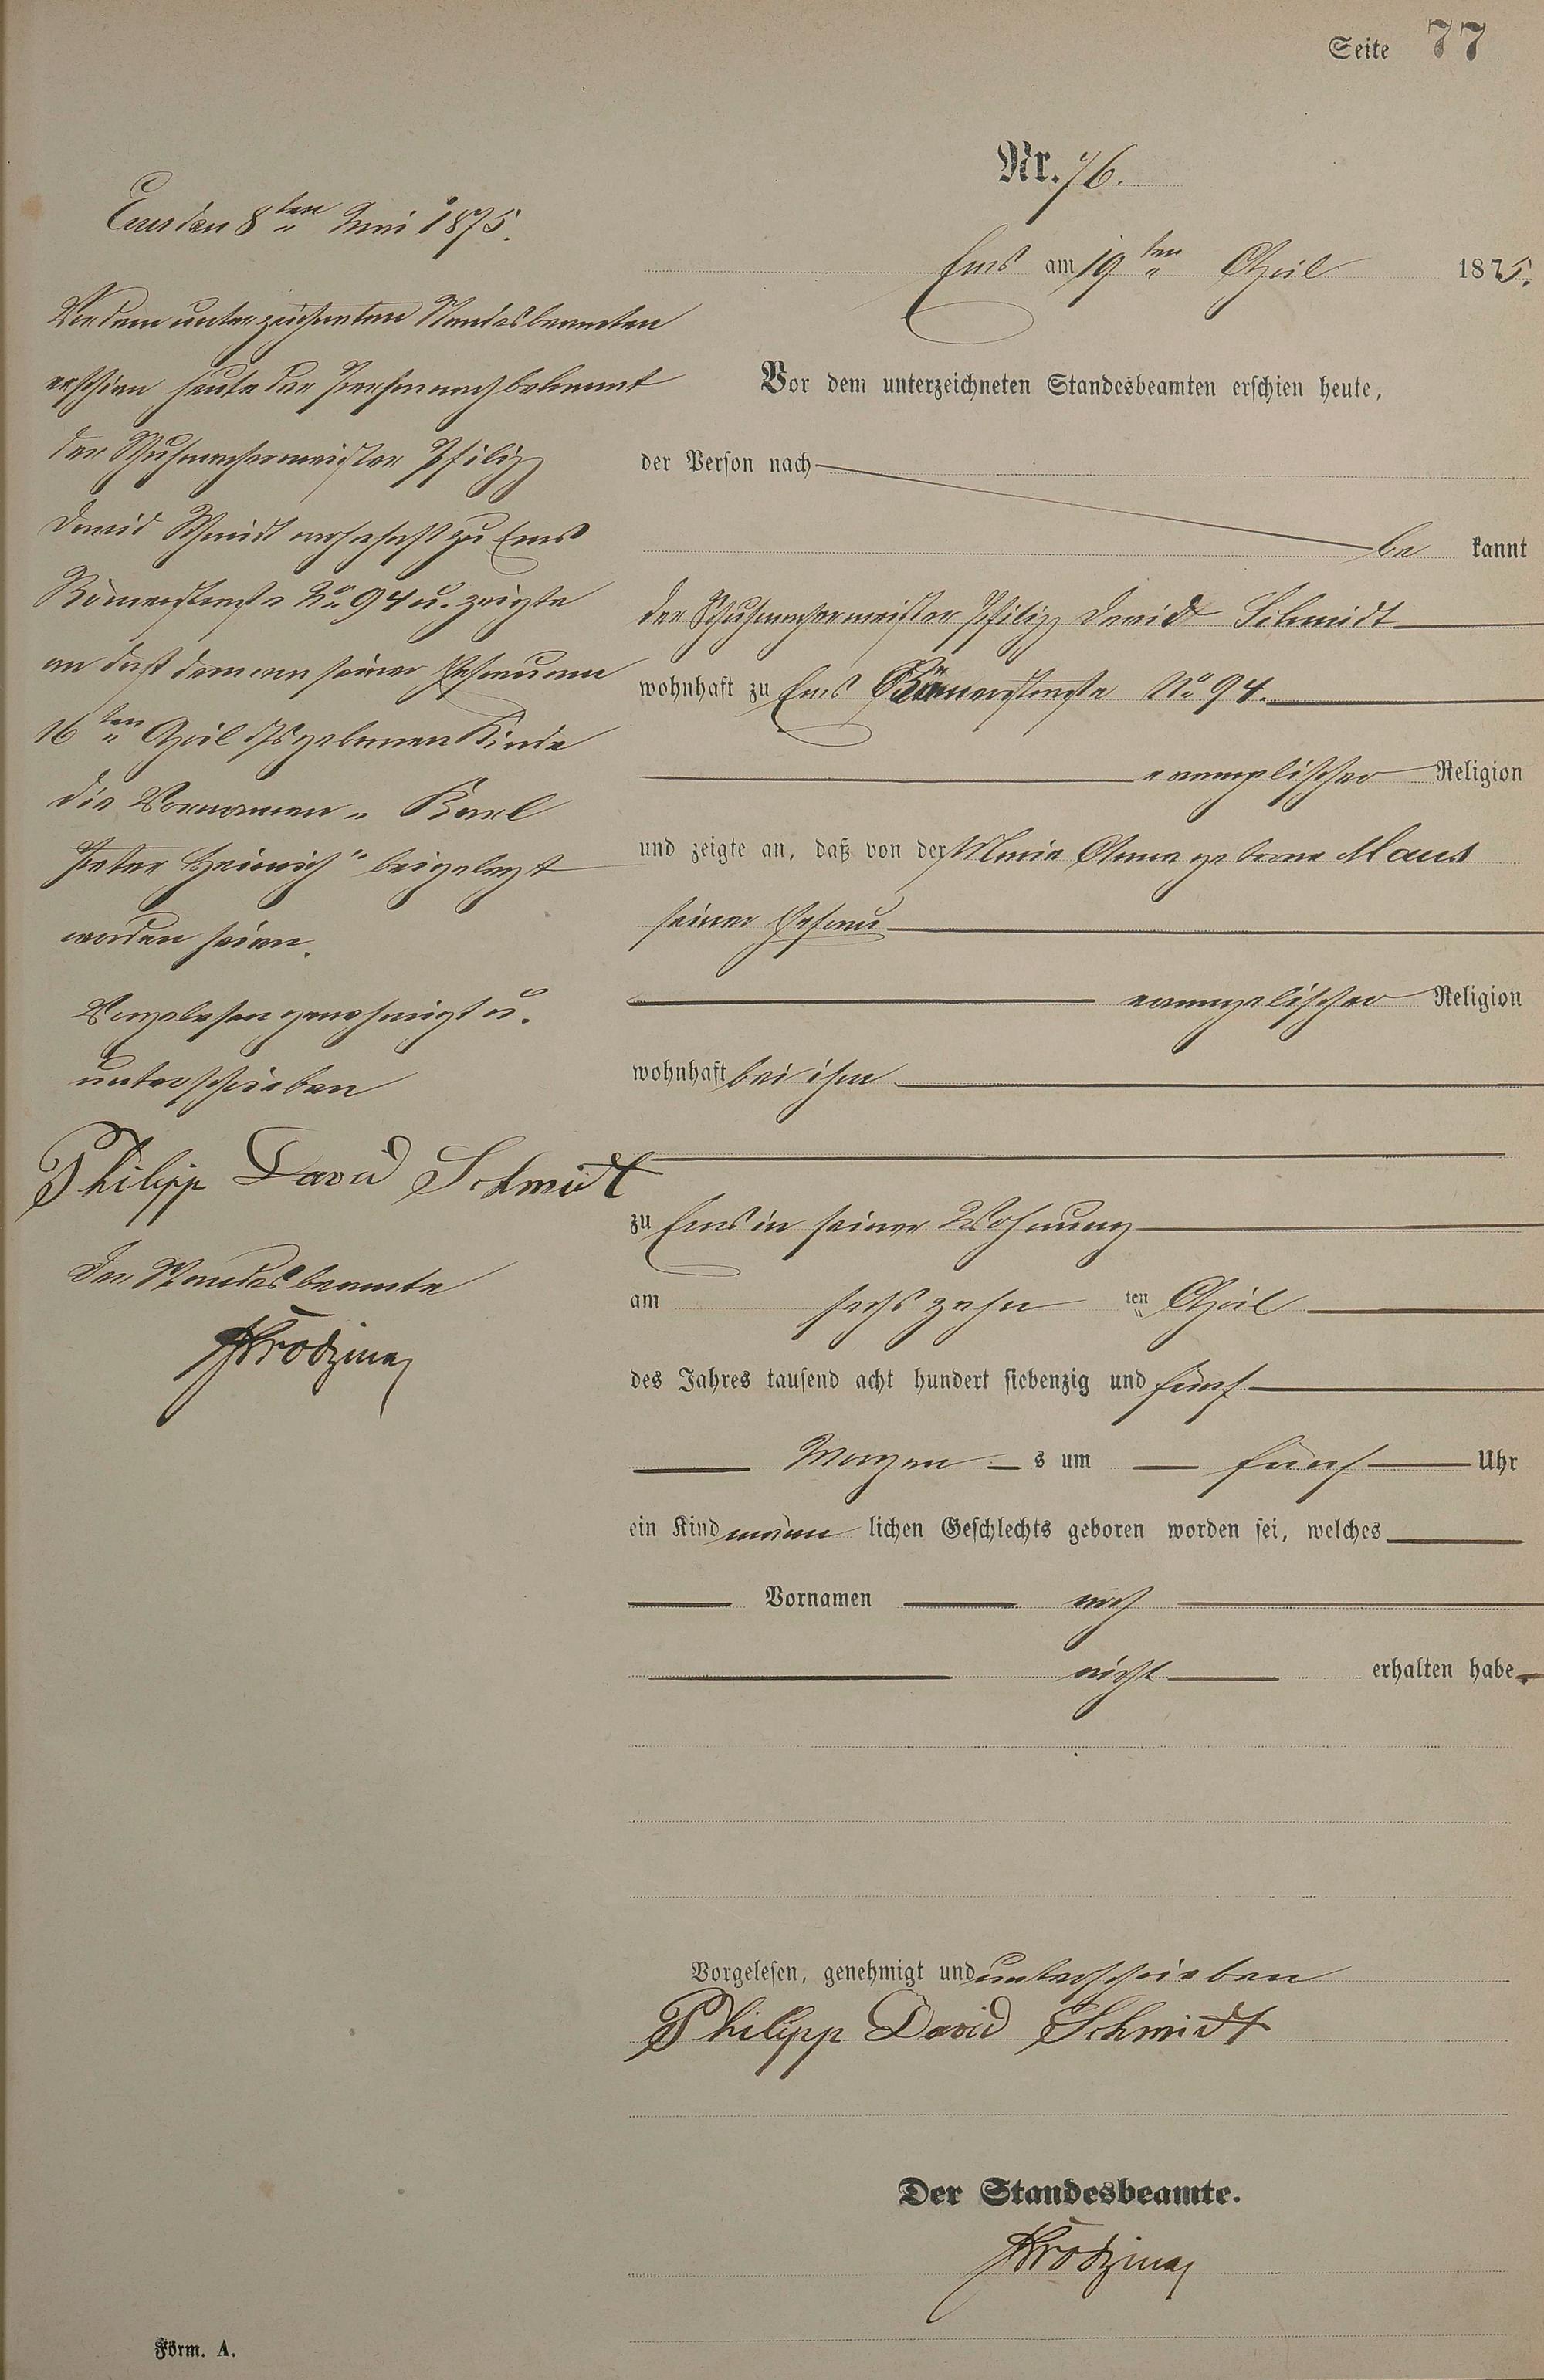 Seite 77
Nr. 76.
Ems am 19ten April 1875.
Vor dem unterzeichneten Standesbeamten erschien heute,
der Person nach
be kannt
der Schuhmachermeister Philipp David Schmidt
wohnhaft zu Ems Römerstraße No 94.
evangelischer Religion
und zeigte an, daß von der Marie Anna geborne Maus
seiner Ehefrau
evangelischer Religion
wohnhaft bei ihm
zu Ems in seiner Wohnung
am sechszehn ten April
des Jahres tausend acht hundert siebenzig und fünf
Morgen s um fünf Uhr
ein Kind männ lichen Geschlechts geboren worden sei, welches
Vornamen noch
nicht erhalten habe
Vorgelesen, genehmigt und unterschrieben
Philipp David Schmidt
Der Standesbeamte.
Ems den 8ten Juni 1875.
Vor dem unterzeichneten Standesbeamten
erschien heute der Person nach bekannt
der Schuhmachermeister Philipp
David Schmidt wohnhaft zu Ems
Römerstraße No 94 u. zeigte
an daß dem von seiner Ehefrau am
16ten April d Js gebornen Kinde
die Vornamen „Karl
Peter Heinrich" beigelegt
worden seien.
Vorgelesen genehmigt u.
unterschrieben
Philipp David Schmidt
Der Standesbeamte
Form. A.